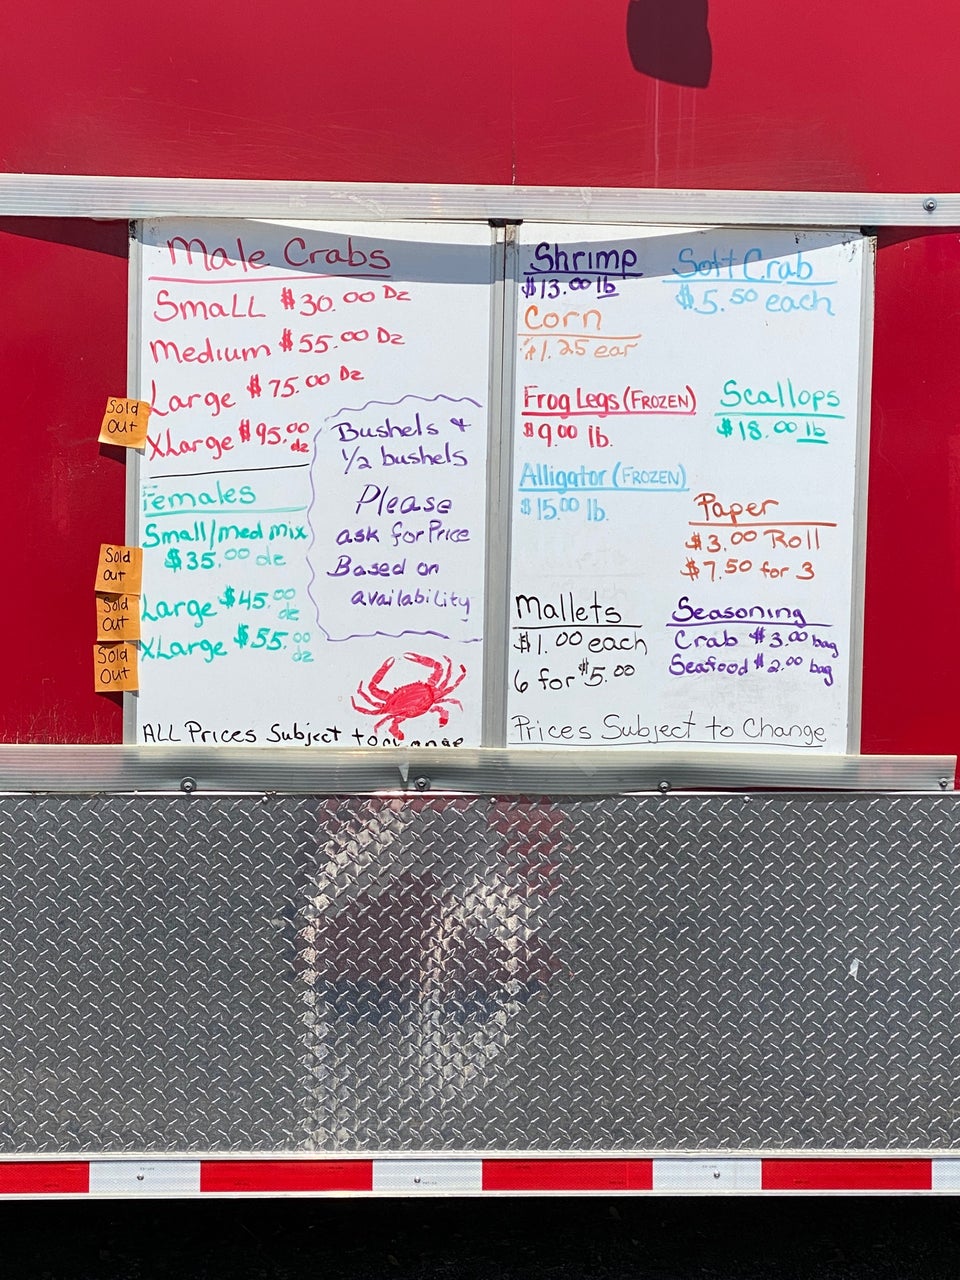 Male Crabs
Small $30.00 Dz
Medium $55.00 Dz
Large $75.00 Dz
Sold Out
XLarge $95.00 dz
Bushels &
1/2 bushels
Please
ask for Price
Based on
availability
Females
Small/med mix
$35.00 dz
Sold out
Large $45.00 dz
Sold Out
XLarge $55.00 dz
Sold Out
ALL Prices Subject to change
Shrimp
$13.00 lb
Soft Crab
$5.50 each
Corn
$1.25 ear
Frog Legs (FROZEN)
$9.00 lb.
Scallops
$18.00 lb
Alligator (FROZEN)
$15.00 lb.
Paper
$3.00 Roll
$7.50 for 3
Mallets
$1.00 each
6 for $5.00
Seasoning
Crab $3.00 bag
Seafood $2.00 bag
Prices Subject to Change